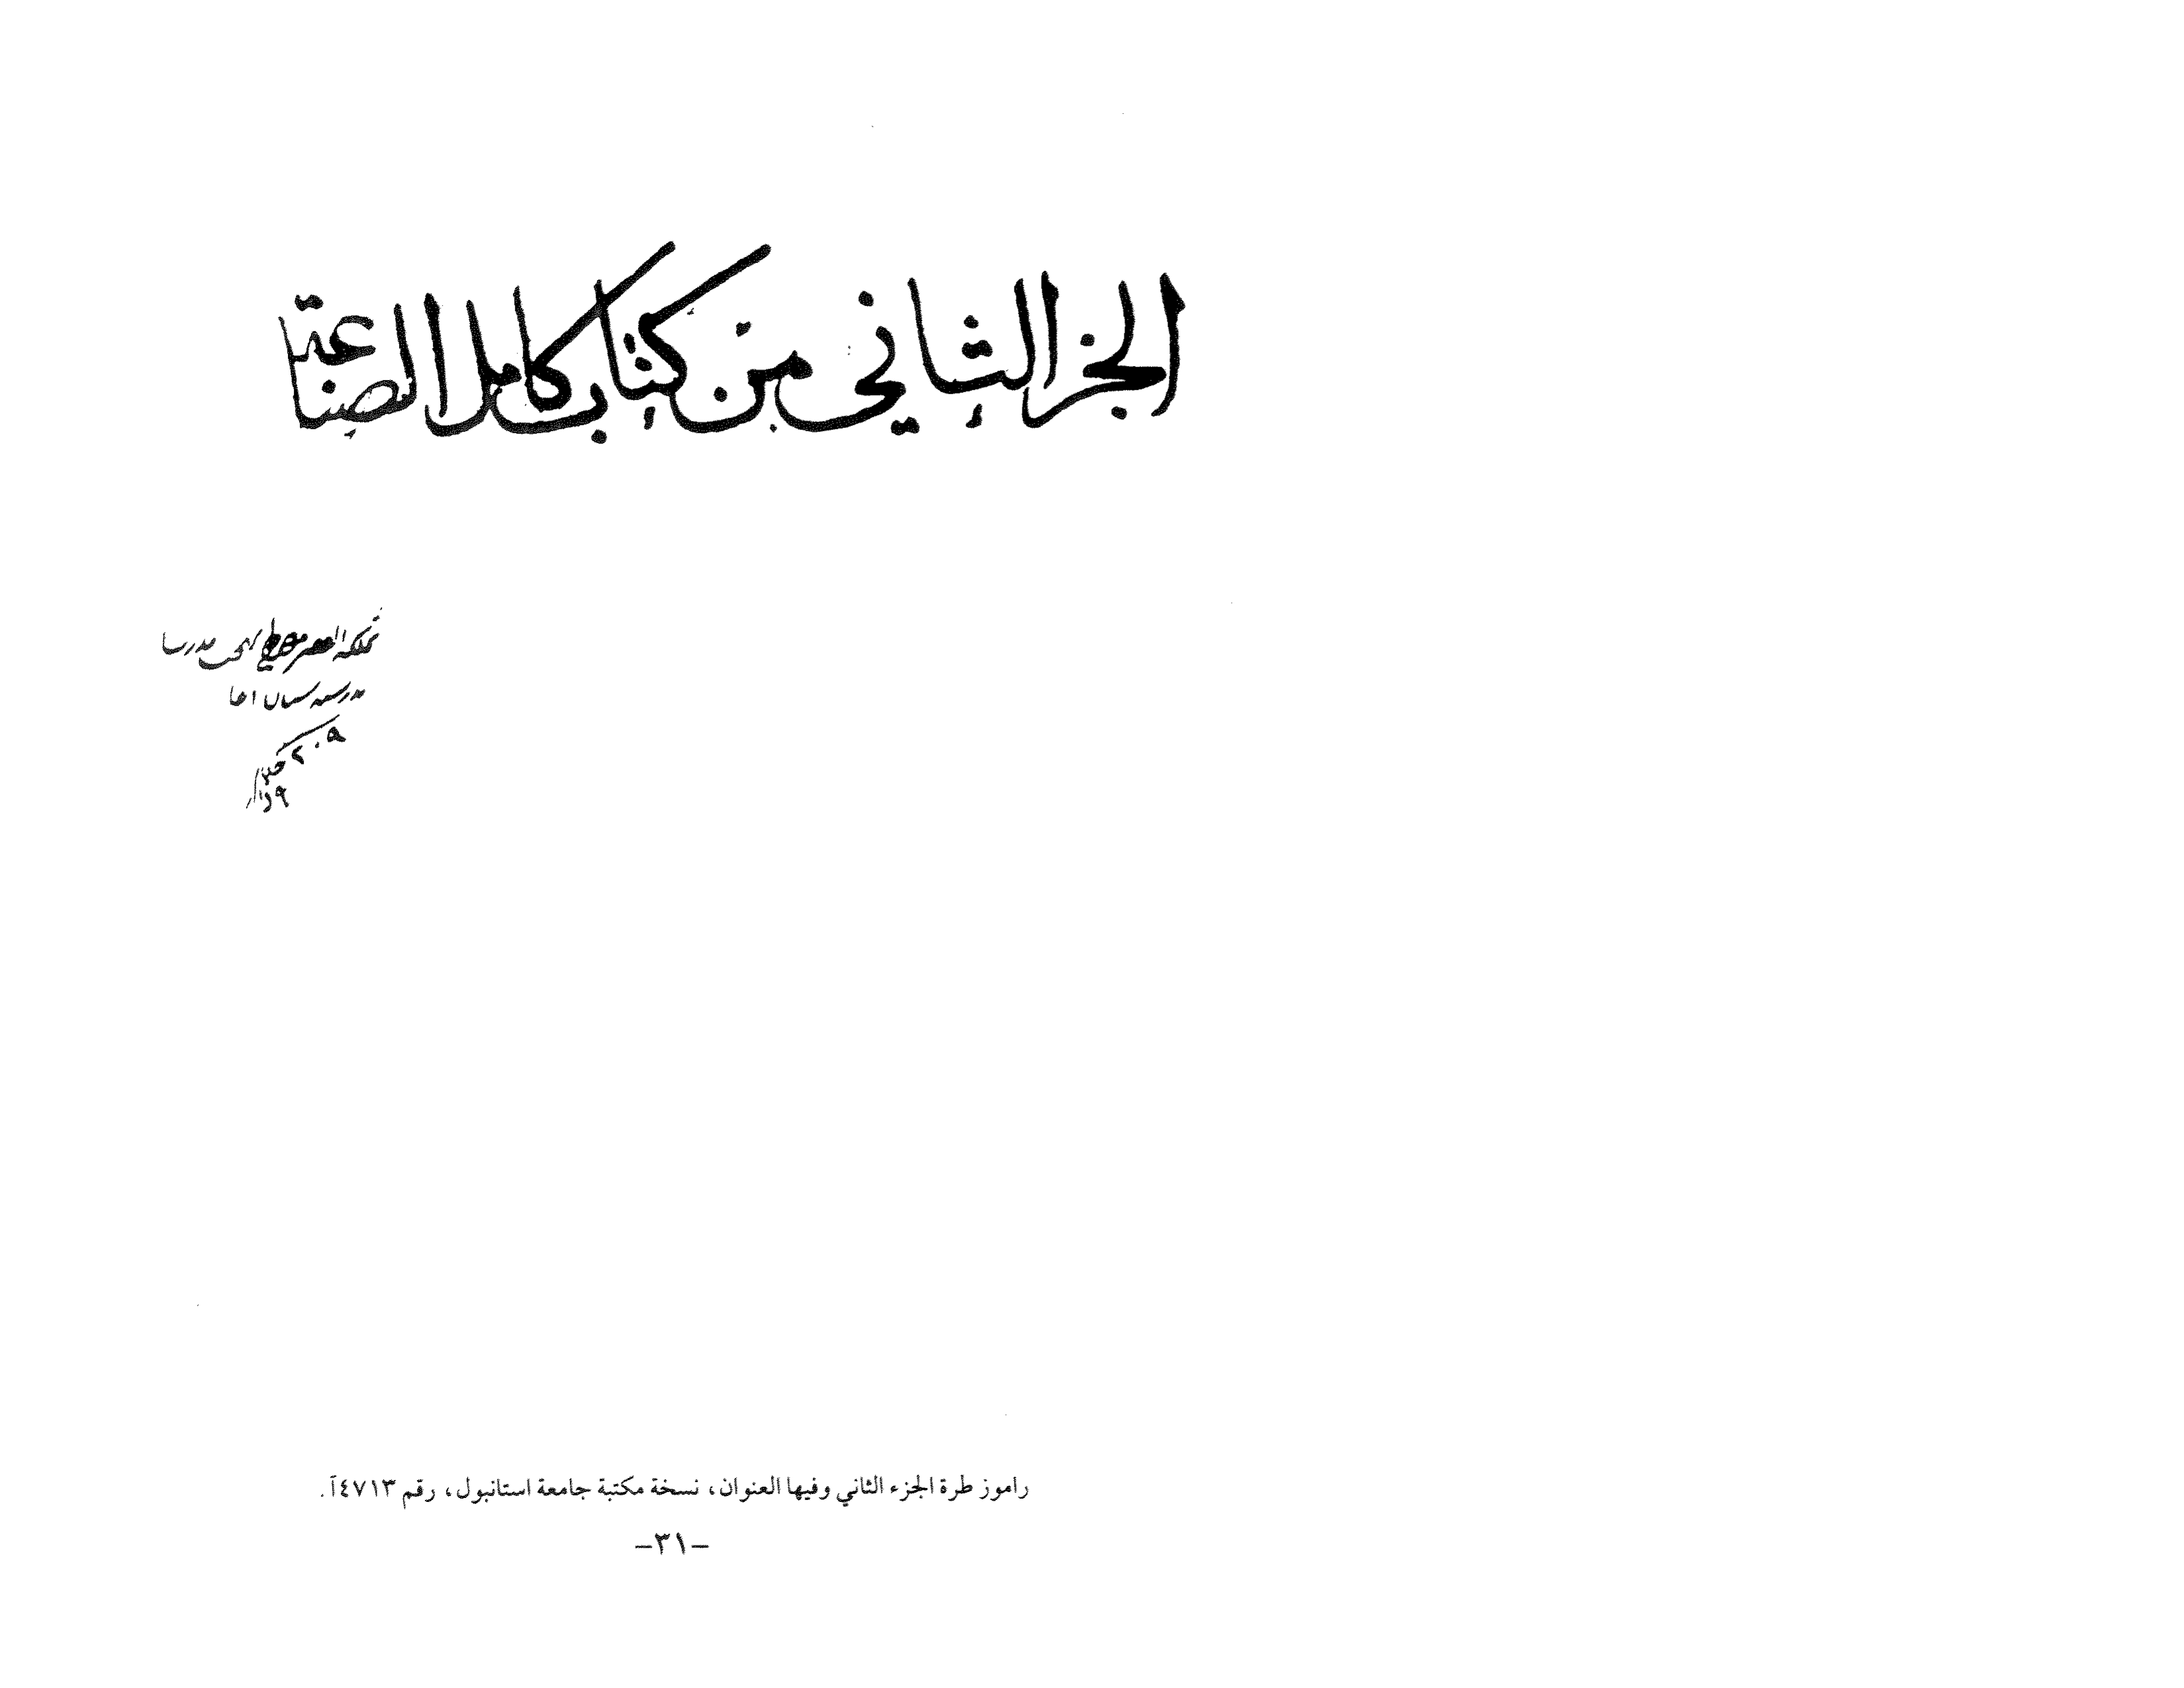 الجزء الثاني من كتاب كامل الصناعة
مدرسه سنان اغا
راموز طرة الجزء الثاني وفيها العنوان، نسخة مكتبة جامعة استانبول، رقم ٤٧١٣آ.
–٣١–